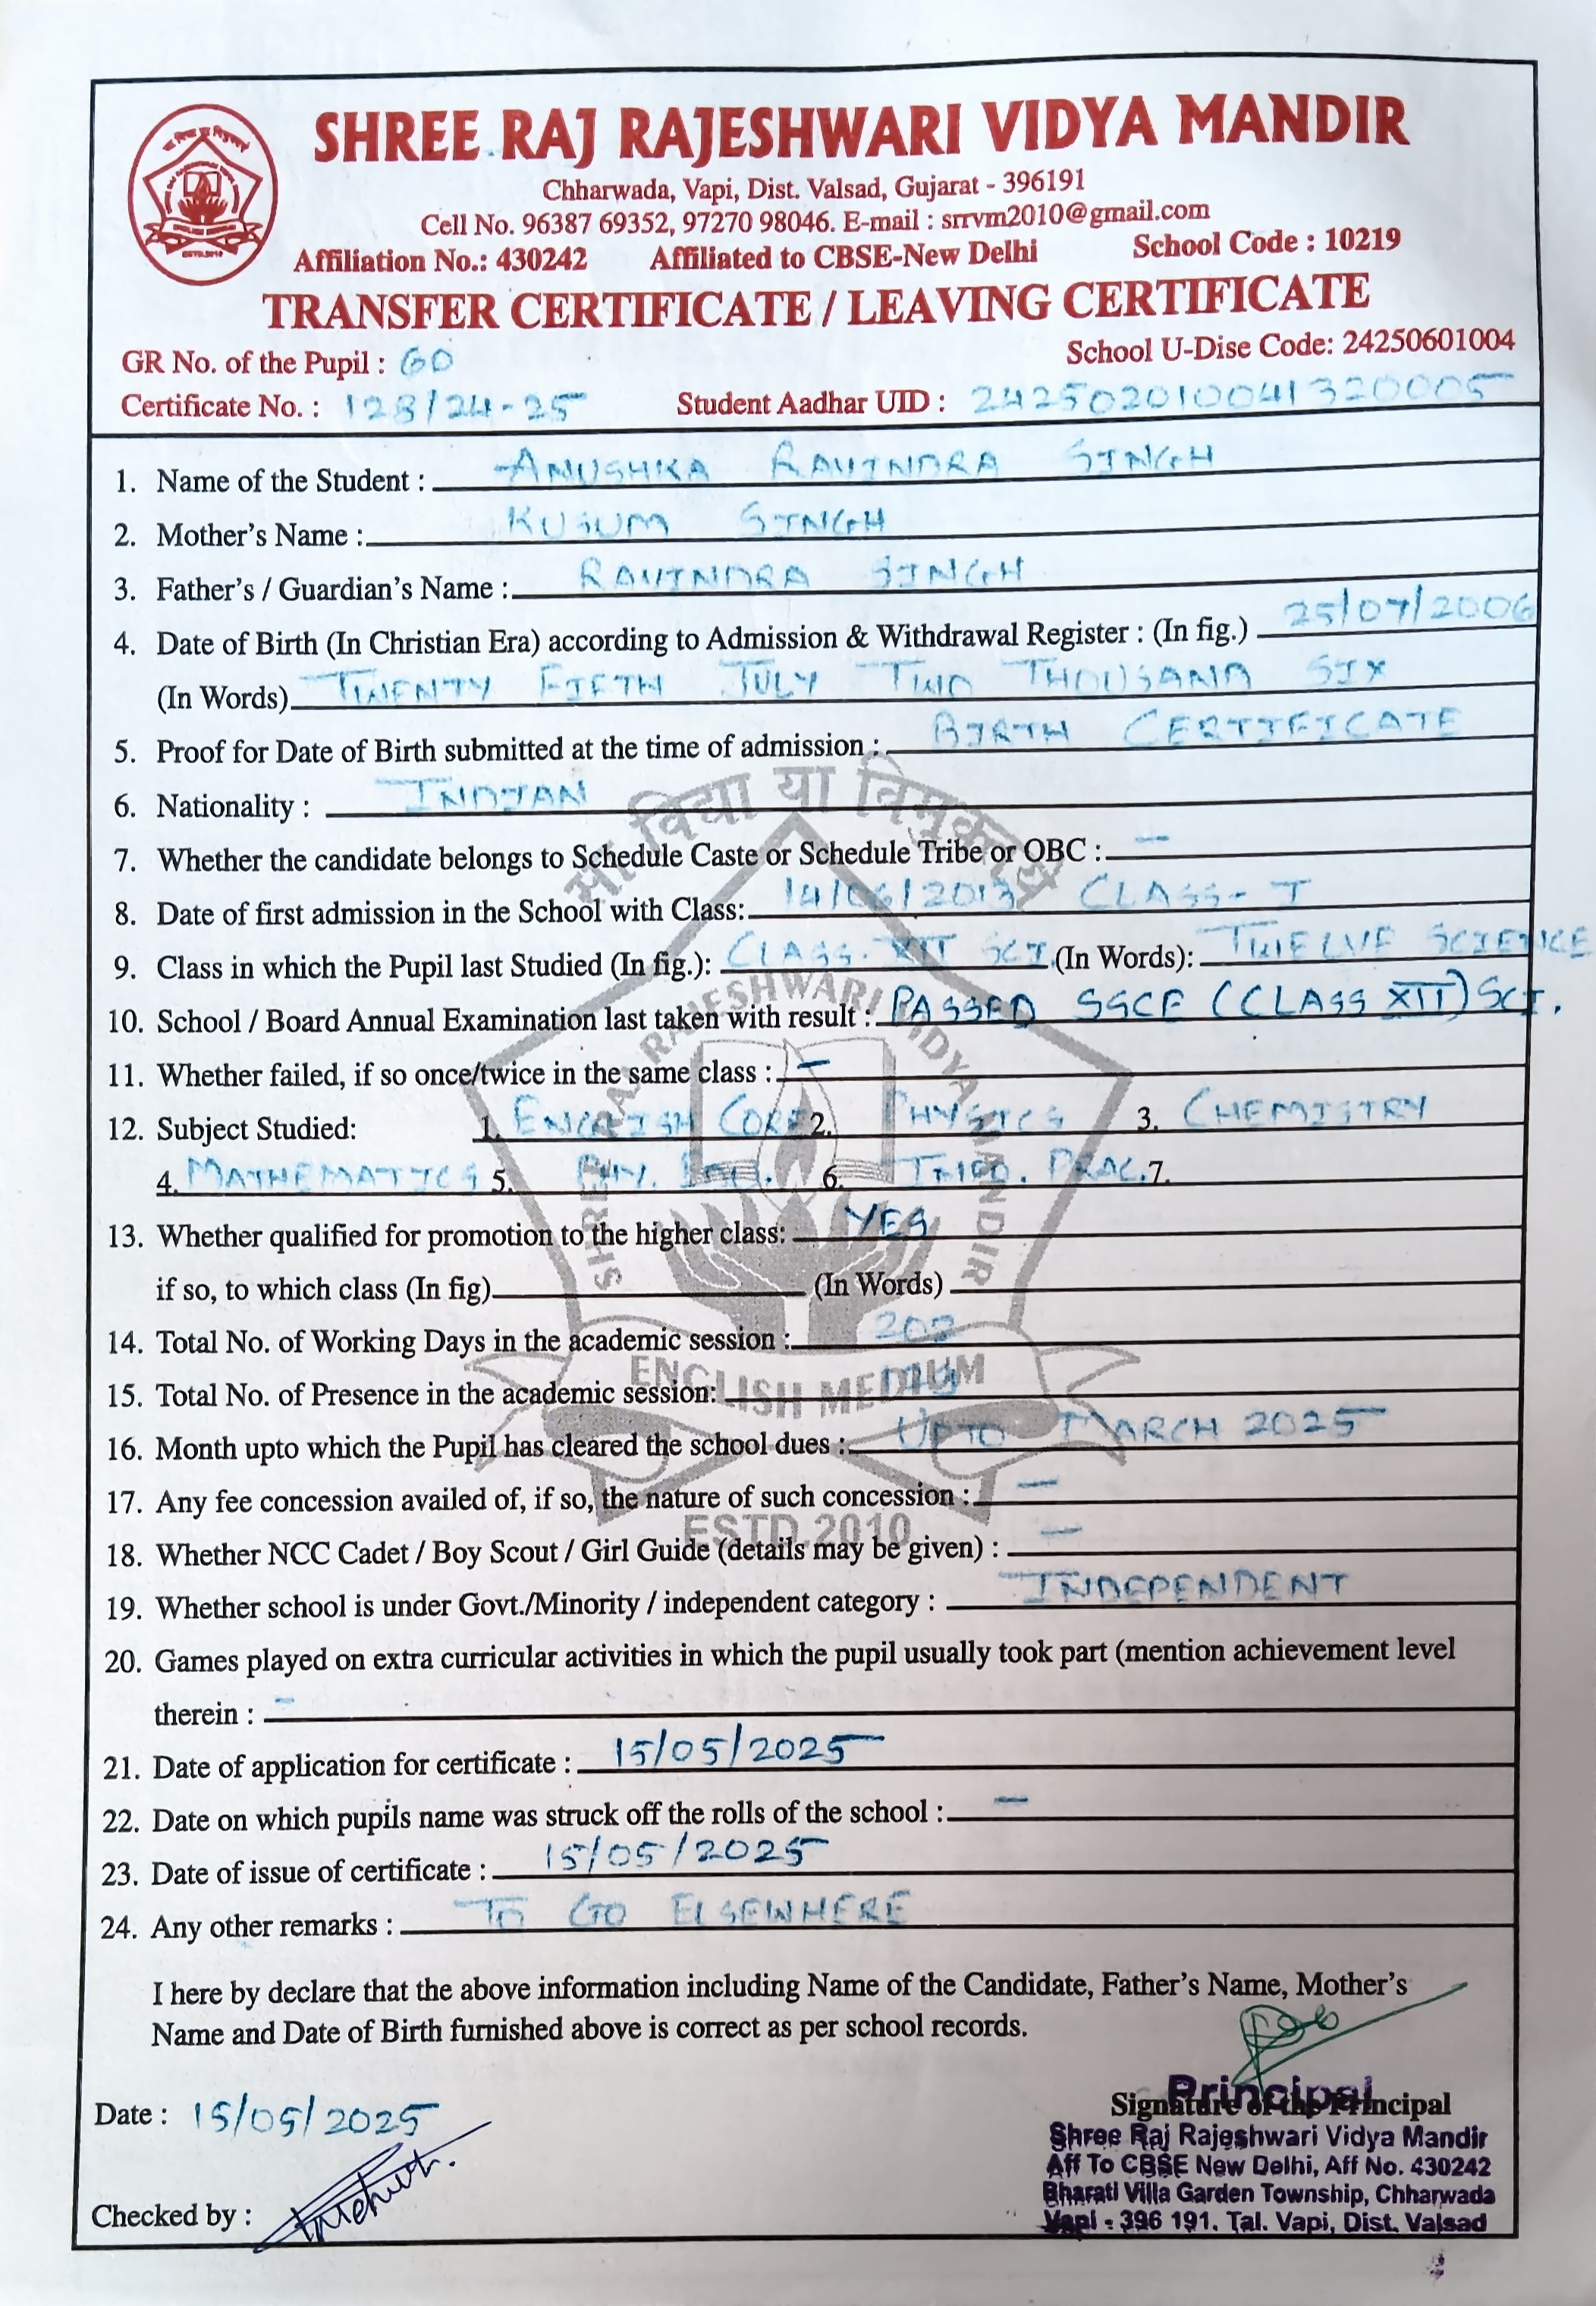 SHREE RAJ RAJESHWARI VIDYA MANDIR
Chharwada, Vapi, Dist. Valsad, Gujarat - 396191
Cell No. 96387 69352, 97270 98046. E-mail : srrvm2010@gmail.com
Affiliation No.: 430242 Affiliated to CBSE-New Delhi School Code : 10219
TRANSFER CERTIFICATE / LEAVING CERTIFICATE
GR No. of the Pupil : 60 School U-Dise Code: 24250601004
Certificate No. : 128/24-25 Student Aadhar UID : 242502010041320005
1. Name of the Student : ANUSHKA RAVINDRA SINGH
2. Mother's Name : KUSUM SINGH
3. Father's / Guardian's Name : RAVINDRA SINGH
4. Date of Birth (In Christian Era) according to Admission & Withdrawal Register : (In fig.) 25/07/2006
(In Words) TWENTY FIFTH JULY TWO THOUSAND SIX
5. Proof for Date of Birth submitted at the time of admission : BIRTH CERTIFICATE
6. Nationality : INDIAN
7. Whether the candidate belongs to Schedule Caste or Schedule Tribe or OBC : —
8. Date of first admission in the School with Class: 14/06/2013 CLASS-I
9. Class in which the Pupil last Studied (In fig.): CLASS-XII SCI. (In Words): TWELVE SCIENCE
10. School / Board Annual Examination last taken with result : PASSED SSCE (CLASS XII) SCI.
11. Whether failed, if so once/twice in the same class : —
12. Subject Studied: 1. ENGLISH CORE 2. PHYSICS 3. CHEMISTRY
4. MATHEMATICS 5. PHY. EDU. 6. PRAC. 7.
13. Whether qualified for promotion to the higher class: YES
if so, to which class (In fig) (In Words)
14. Total No. of Working Days in the academic session : 202
15. Total No. of Presence in the academic session:
16. Month upto which the Pupil has cleared the school dues : UPTO MARCH 2025
17. Any fee concession availed of, if so, the nature of such concession : —
18. Whether NCC Cadet / Boy Scout / Girl Guide (details may be given) : —
19. Whether school is under Govt./Minority / independent category : INDEPENDENT
20. Games played on extra curricular activities in which the pupil usually took part (mention achievement level
therein : —
21. Date of application for certificate : 15/05/2025
22. Date on which pupils name was struck off the rolls of the school : —
23. Date of issue of certificate : 15/05/2025
24. Any other remarks : TO GO ELSEWHERE
I here by declare that the above information including Name of the Candidate, Father's Name, Mother's
Name and Date of Birth furnished above is correct as per school records.
Date : 15/05/2025
Signature of the Principal
Principal
Shree Raj Rajeshwari Vidya Mandir
Aff To CBSE New Delhi, Aff No. 430242
Bharati Villa Garden Township, Chharwada
Vapi - 396 191. Tal. Vapi, Dist. Valsad
Checked by :
सा विद्या या विमुक्तये
SHREE RAJ RAJESHWARI VIDYA MANDIR
ENGLISH MEDIUM
ESTD.2010